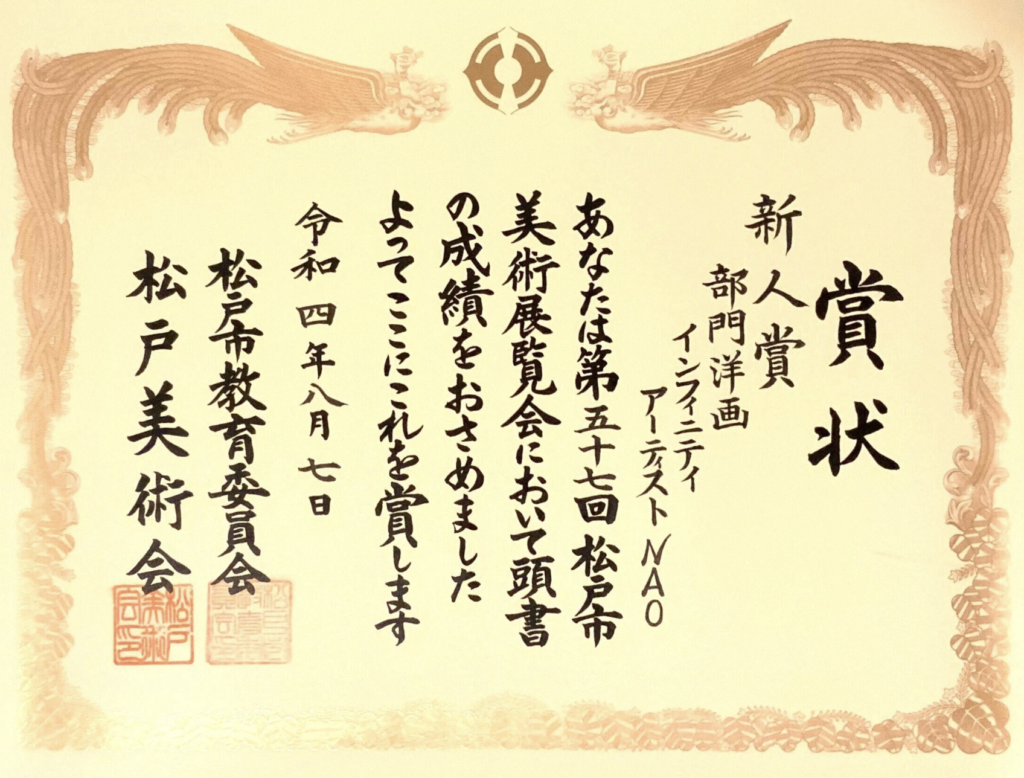 賞状
新人賞
部門洋画
インフィニティ
アーティスト NAO
あなたは第五十七回松戸市
美術展覧会において頭書
の成績をおさめました
よってここにこれを賞します
令和四年八月七日
松戸市教育委員会
松戸美術会